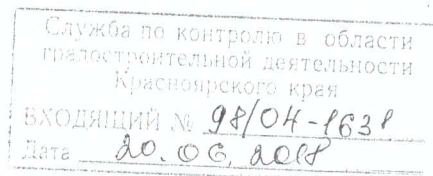 Служба по контролю в области
градостроительной деятельности
Красноярского края
ВХОДЯЩИЙ № 98/04-1631
Дата 20.06.2018